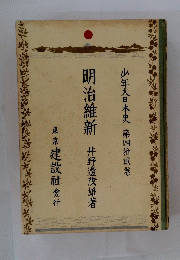 少年大日本史 第四拾貳卷
明治維新 井野邊茂雄著
東京 建設社 發行